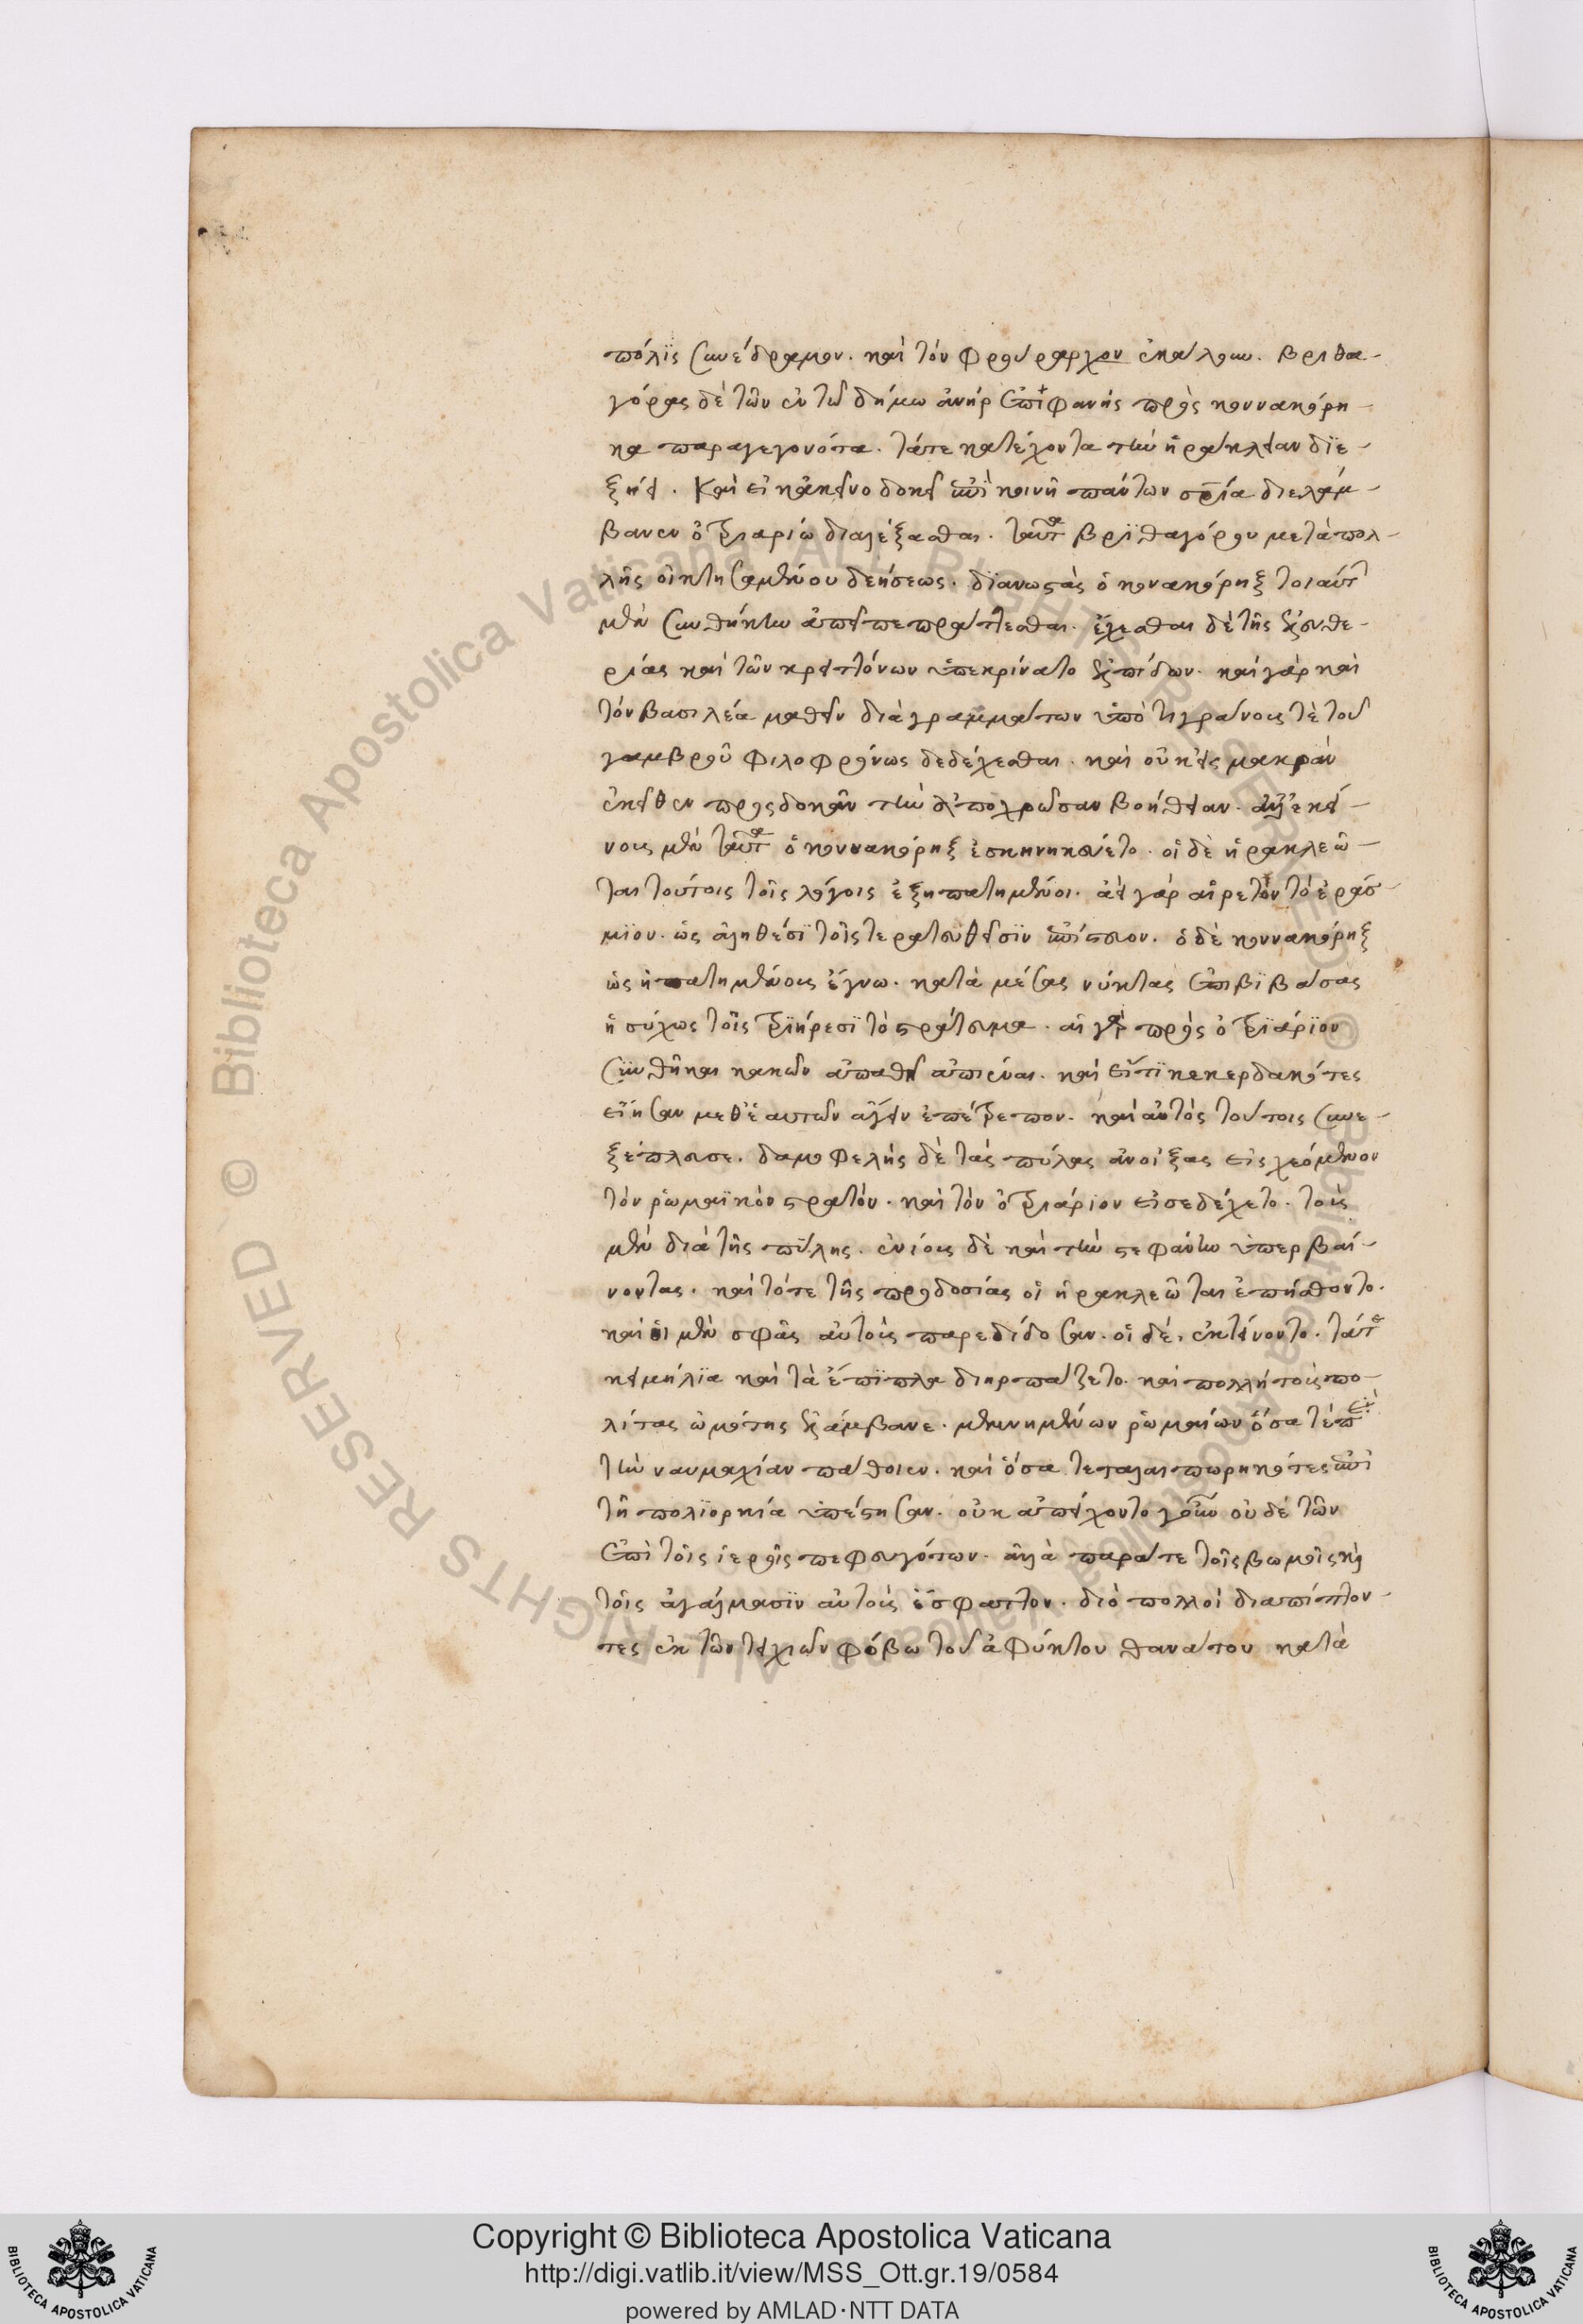 πόλις συνέδραμον. καὶ τὸν φρούραρχον ἐκάλουν. βριθα-
γόρας δὲ τῶν ἐν τῷ δήμῳ ἀνὴρ ἐπιφανὴς πρὸς κοννακόρη-
κα παραγεγονότα. τάτε κατέχοντα τὴν ἡράκλειαν διε-
ξῄει. καὶ εἰ κἀκείνῳ δοκεῖ ἐπὶ κοινῇ πάντων σρία διελάμ-
βανεν ὁ τριαρίῳ διαλέξασθαι. ταῦτα βριθαγόρου μετὰ πολ-
λῆς οἰκτησαμένου δεήσεως. διαναστὰς ὁ κοννακόρηξ τοιαύτ
μὲν συνθήκην ἀπείπε πράττεσθαι. ἔχεσθαι δὲ τῆς ἐλευθε-
ρίας καὶ τῶν κρειττόνων ὑπεκρίνατο ἐλπίδων. καὶ γὰρ καὶ
τὸν βασιλέα μαθεῖν διὰ γραμμάτων ὑπὸ τιγράνους τὲ τοῦ
γαμβροῦ φιλοφρόνως δεδέχθαι. καὶ οὐκ εἰς μακρὰν
ἐκεῖθεν προςδοκᾶν τὴν ἀποχρῶσαν βοήθειαν. ἀλλ' ἐκεί-
νοις μὲν ταῦτα ὁ κοννακόρηξ ἐσκηνικεύετο. οἱ δὲ ἡρακλεῶ-
ται τούτοις τοῖς λόγοις ἐξηπατημένοι. ἀεὶ γὰρ αἱρετὸν τὸ ἐράσ-
μιον. ὡς ἀληθέσι τοῖς τερατευθεῖσιν ἐπίστευον. ὁ δὲ κοννακόρηξ
ὡς ἠπατημένους ἔγνω. κατὰ μέσας νύκτας ἐπιβιβάσας
ἡσύχως τοῖς τριήρεσι τὸ στράτευμα. αἱ γὰρ πρὸς ὁ τριάριον
συνθῆκαι κακῶν ἀπαθεῖ ἀπιέναι. καὶ εἴτι κεκερδακότες
εἴησαν μεθ' ἑαυτῶν ἄγειν ἐπέτρεπον. καὶ αὐτὸς τούτοις συνε-
ξέπλευσε. δαμοφελὴς δὲ τὰς πύλας ἀνοίξας εἰσχεόμενον
τὸν ῥωμαϊκὸν στρατόν. καὶ τὸν ὁ τριάριον εἰσεδέχετο. τοὺς
μὲν διὰ τῆς πύλης. ἐνίους δὲ καὶ τὴν στεφάνην ὑπερβαί-
νοντας. καὶ τότε τῆς προδοσίας οἱ ἡρακλεῶται ἐπῄσθοντο.
καὶ οἱ μὲν σφᾶς αὐτοὺς παρεδίδοσαν. οἱ δὲ, ἐκτείνοντο. τάτε
κειμήλια καὶ τὰ ἔπιπλα διηρπάζετο. καὶ πολλὴ τοὺς πο-
λίτας ὠμότης ἐλάμβανε. μεμνημένων ῥωμαίων ὅσα τὲ περὶ
τὴν ναυμαχίαν πάθοιεν. καὶ ὅσα τεταλαιπωρηκότες ἐπὶ
τῇ πολιορκία ὑπέστησαν. οὐκ ἀπείχοντο γοῦν οὐδὲ τῶν
ἐπὶ τοῖς ἱεροῖς πεφευγότων. ἀλλὰ παράτε τοῖς βωμοῖς καὶ
τοῖς ἀγάλμασιν αὐτοὺς ἔσφαττον. διὸ πολλοὶ διαπίπτον-
τες ἐκ τῶν τειχιῶν φόβῳ τοῦ ἀφύκτου θανάτου κατὰ
Copyright © Biblioteca Apostolica Vaticana
http://digi.vatlib.it/view/MSS_Ott.gr.19/0584
powered by AMLAD·NTT DATA